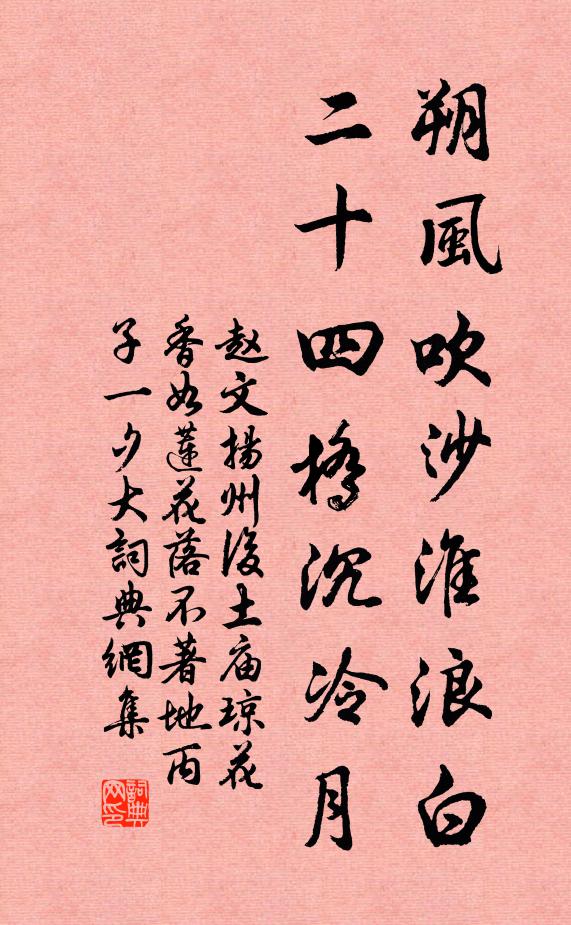 朔風吹沙淮浪白
二十四橋沉冷月
赵文揚州後土庙琼花
香如蓮花落不著地丙
子一夕大詞典網集
詞典网印